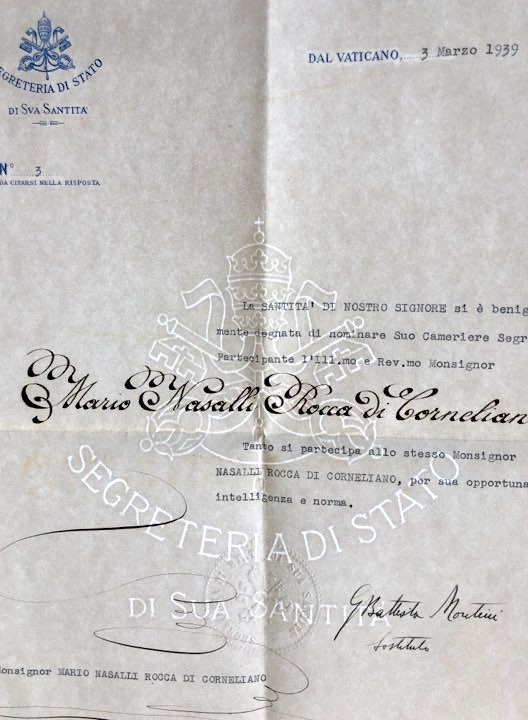 SEGRETERIA DI STATO
DI SVA SANTITA'
DAL VATICANO, 3 Marzo 1939
N° 3
DA CITARSI NELLA RISPOSTA
La SANTITA' DI NOSTRO SIGNORE si è benig
mente degnata di nominare Suo Cameriere Segr
Partecipante l'Ill.mo e Rev.mo Monsignor
Mario Nasalli Rocca di Cornelian
Tanto si partecipa allo stesso Monsignor
NASALLI ROCCA DI CORNELIANO, per sua opportuna
intelligenza e norma.
SEGRETERIA DI STATO
DI SUA SANTITÀ
G Battista Montini
Sostituto
Monsignor MARIO NASALLI ROCCA DI CORNELIANO